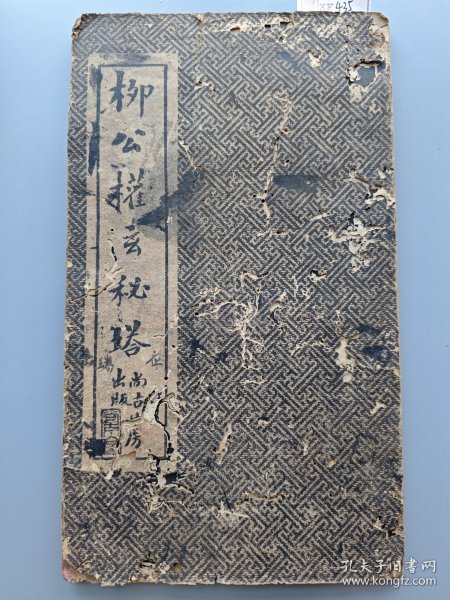 柳公權玄秘塔
尚古山房
出版
435
孔夫子旧书网
www.kongfz.com